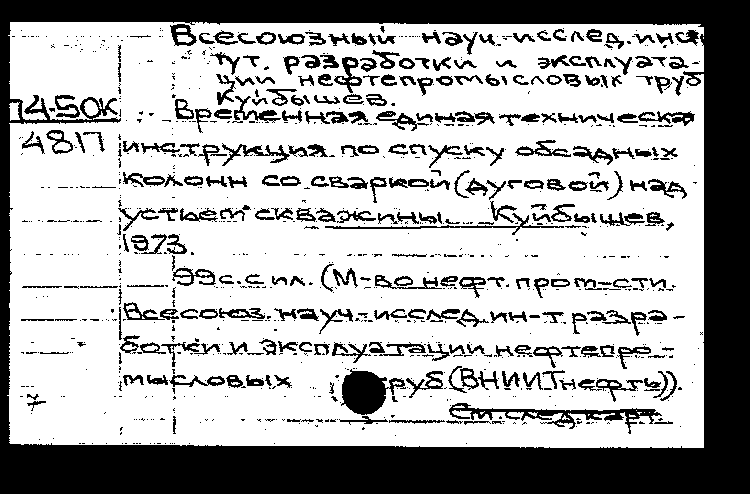 Всесоюзный науч.-исслед. инсти
тут. разработки и эксплуата-
ции нефтепромысловых труб
Куйбышев.
74-50К
Временная единая техническая
481П
инструкция по спуску обсадных
колонн со сваркой (дуговой) над
устьем скважины. Куйбышев,
1973.
99с. с ил. (М-во нефт. пром-сти.
Всесоюз. науч.-исслед. ин-т разра-
ботки и эксплуатации нефтепро-
мысловых труб (ВНИИТнефть)).
См. след. карт.
7